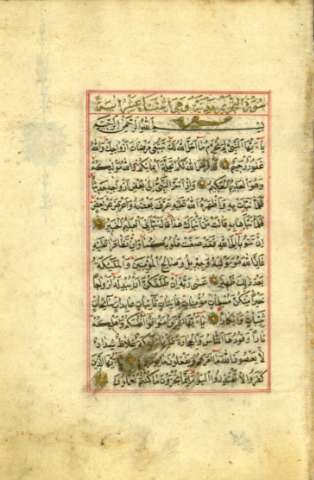 سورة التحريم مدنية وهي اثنتا عشر آية
بسم الله الرحمن الرحيم
يا ايها النبي لم تحرم ما احل الله لك تبتغي مرضات ازواجك والله
غفور رحيم قد فرض الله لكم تحلة ايمانكم والله موليكم
وهو العليم الحكيم واذ اسر النبي الى بعض ازواجه حديثا
فلما نبات به واظهره الله عليه عرف بعضه واعرض عن بعض
فلما نباها به قالت من انباك هذا قال نباني العليم الخبير
ان تتوبا الى الله فقد صغت قلوبكما وان تظاهرا عليه
فان الله هو موليه وجبريل وصالح المؤمنين والملئكة
بعد ذلك ظهير عسى ربه ان طلقكن ان يبدله ازواجا
خيرا منكن مسلمات مؤمنات قانتات تائبات عابدات سائحات
ثيبات وابكارا يا ايها الذين امنوا قوا انفسكم واهليكم
نارا وقودها الناس والحجارة عليها ملئكة غلاظ شداد
لا يعصون الله ما امرهم ويفعلون ما يؤمرون يا ايها الذين
كفروا لا تعتذروا اليوم انما تجزون ما كنتم تعملون